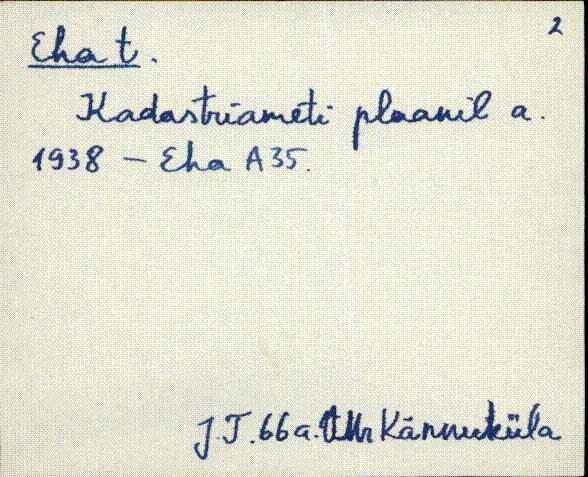 2
Eha t.
Kadastriameti plaanil a.
1938 – Eha A35.
J.T. 66 a. VMr Kännuküla